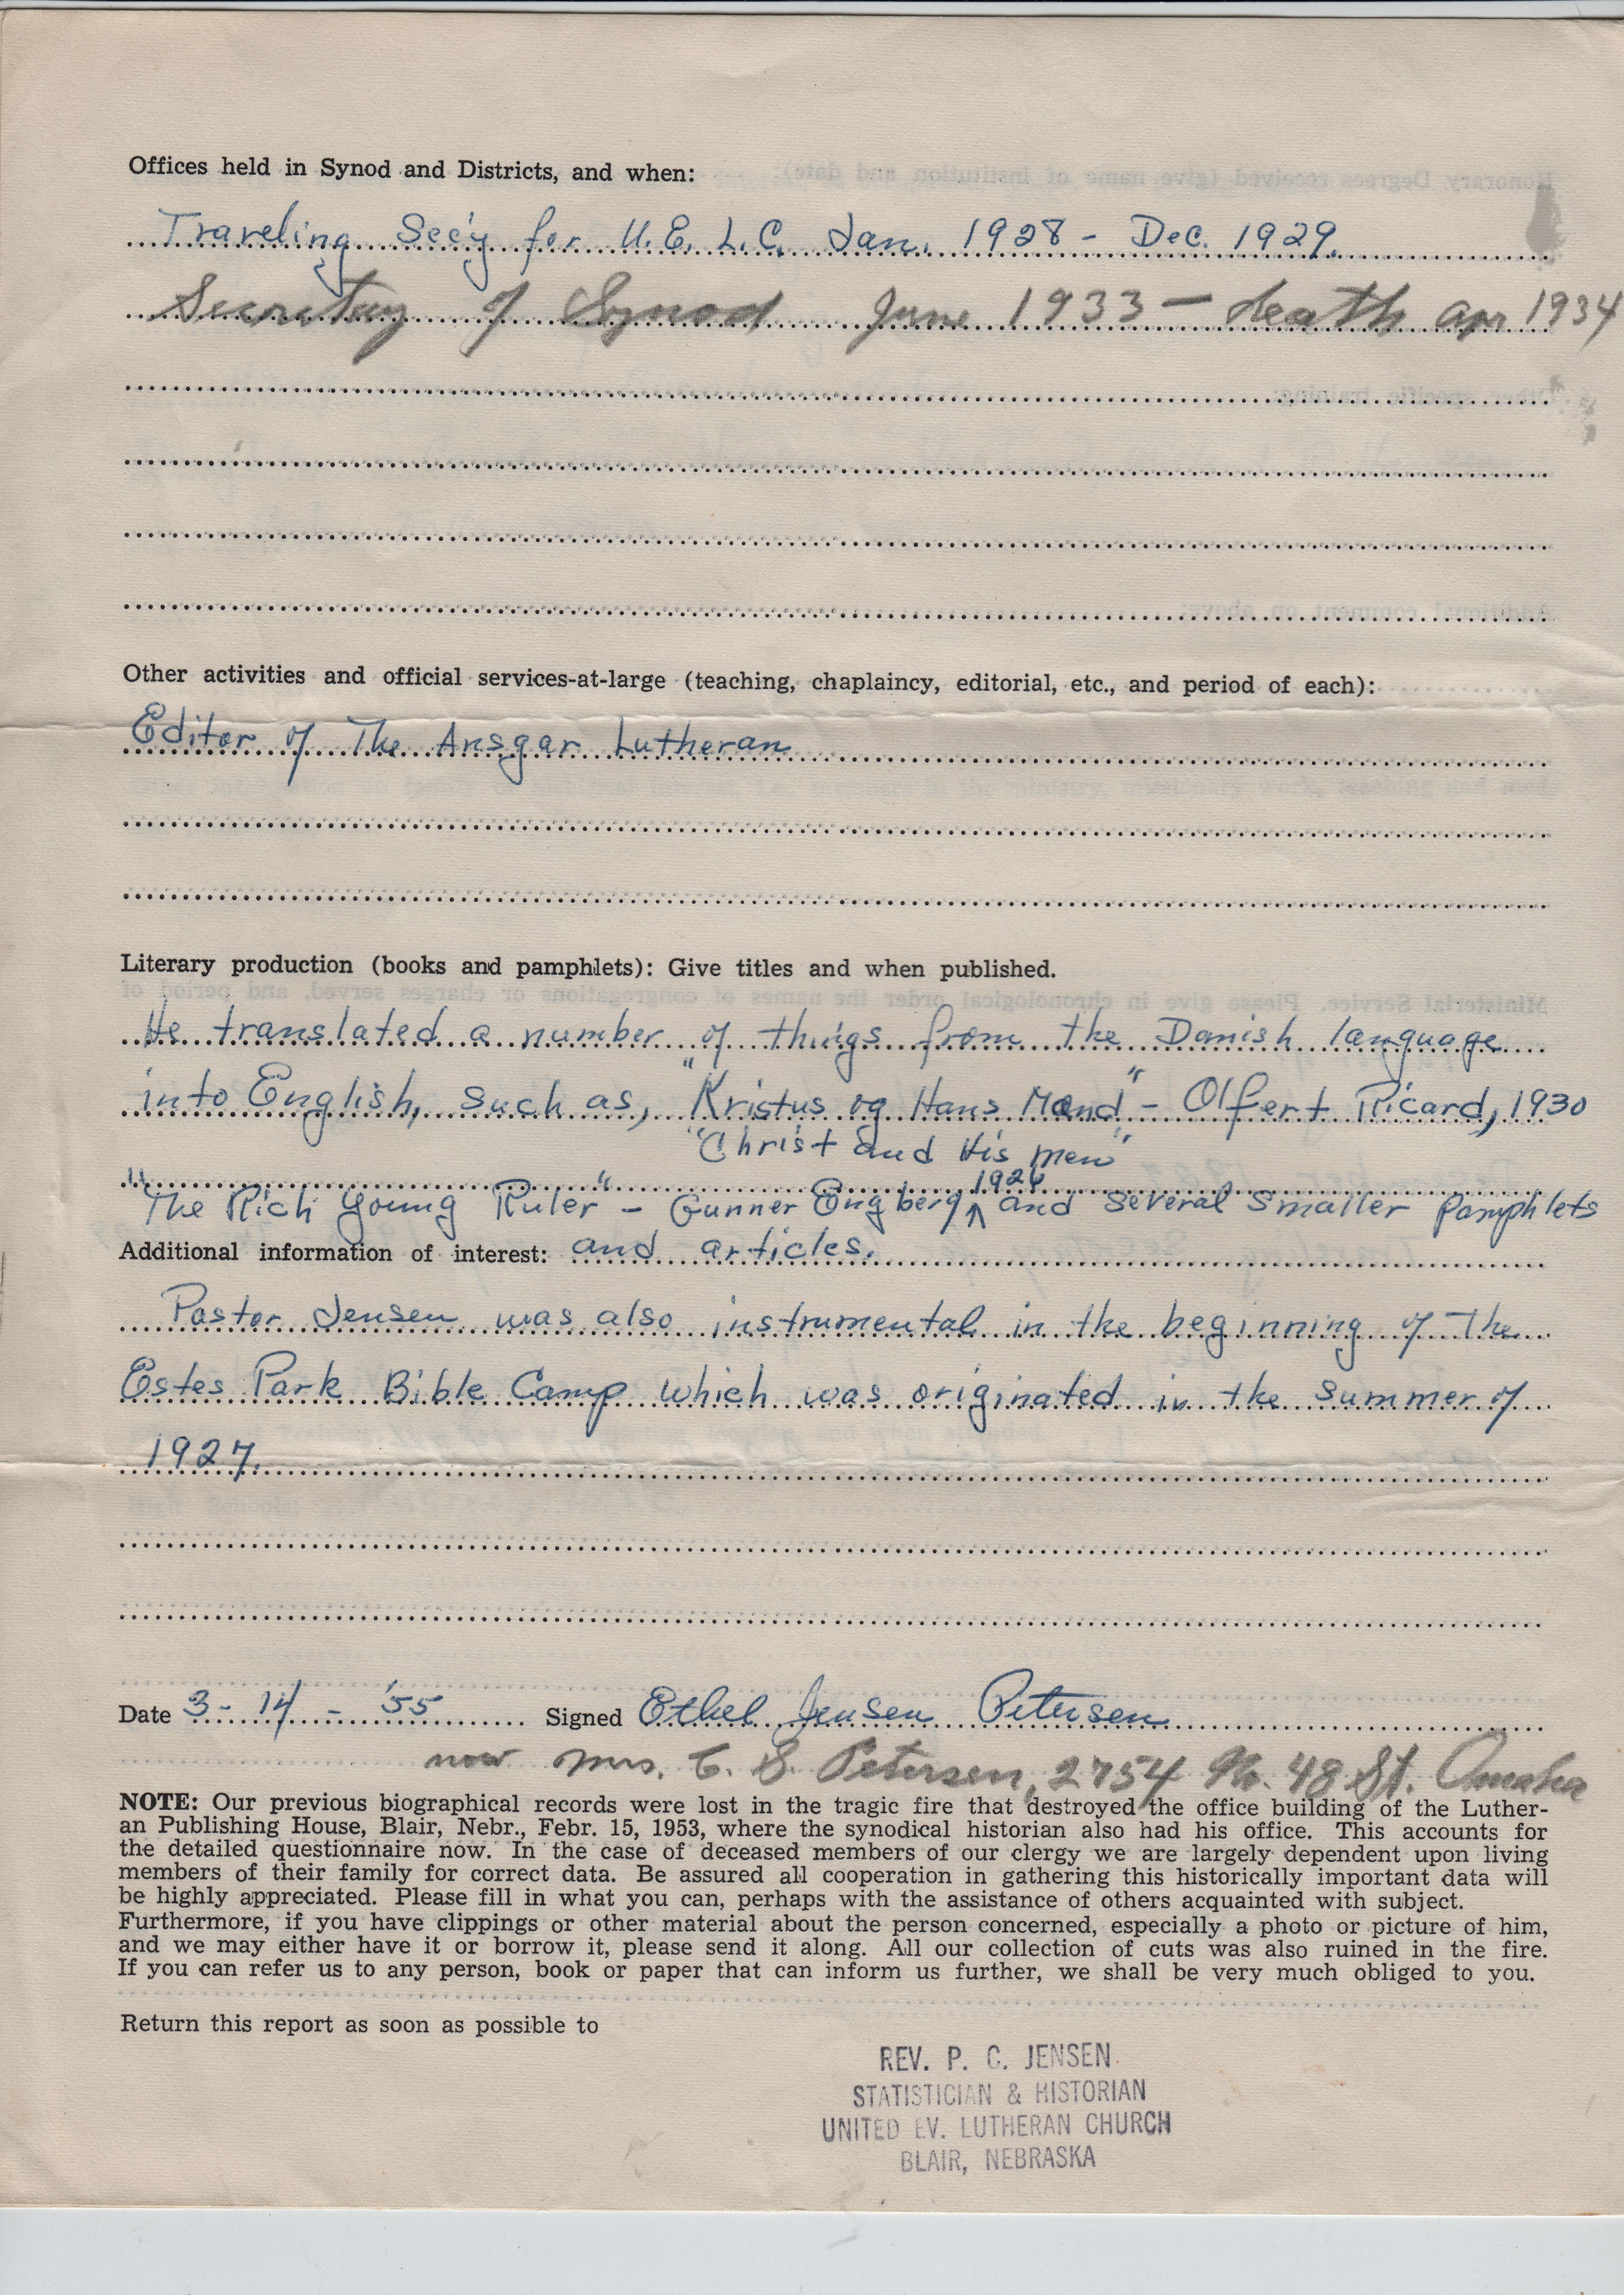 Offices held in Synod and Districts, and when:
Traveling Sec'y for U.E.L.C. Jan. 1928 - Dec. 1929.
Secretary of Synod June 1933 — death Apr 1934
Other activities and official services-at-large (teaching, chaplaincy, editorial, etc., and period of each):
Editor of The Ansgar Lutheran
Literary production (books and pamphlets): Give titles and when published.
He translated a number of things from the Danish language
into English, such as, "Kristus og Hans Mænd" - Olfert Ricard, 1930
"Christ and His men"
1926
"The Rich Young Ruler" - Gunner Engberg, ^ and several smaller pamphlets
Additional information of interest: and articles.
Pastor Jensen was also instrumental in the beginning of The
Estes Park Bible Camp which was originated in the summer of
1927.
Date 3 - 14 - '55 Signed Ethel Jensen Petersen
now Mrs. C. S. Petersen, 2754 No. 48 St. Omaha
NOTE: Our previous biographical records were lost in the tragic fire that destroyed the office building of the Luther-
an Publishing House, Blair, Nebr., Febr. 15, 1953, where the synodical historian also had his office. This accounts for
the detailed questionnaire now. In the case of deceased members of our clergy we are largely dependent upon living
members of their family for correct data. Be assured all cooperation in gathering this historically important data will
be highly appreciated. Please fill in what you can, perhaps with the assistance of others acquainted with subject.
Furthermore, if you have clippings or other material about the person concerned, especially a photo or picture of him,
and we may either have it or borrow it, please send it along. All our collection of cuts was also ruined in the fire.
If you can refer us to any person, book or paper that can inform us further, we shall be very much obliged to you.
Return this report as soon as possible to
REV. P. C. JENSEN
STATISTICIAN & HISTORIAN
UNITED EV. LUTHERAN CHURCH
BLAIR, NEBRASKA